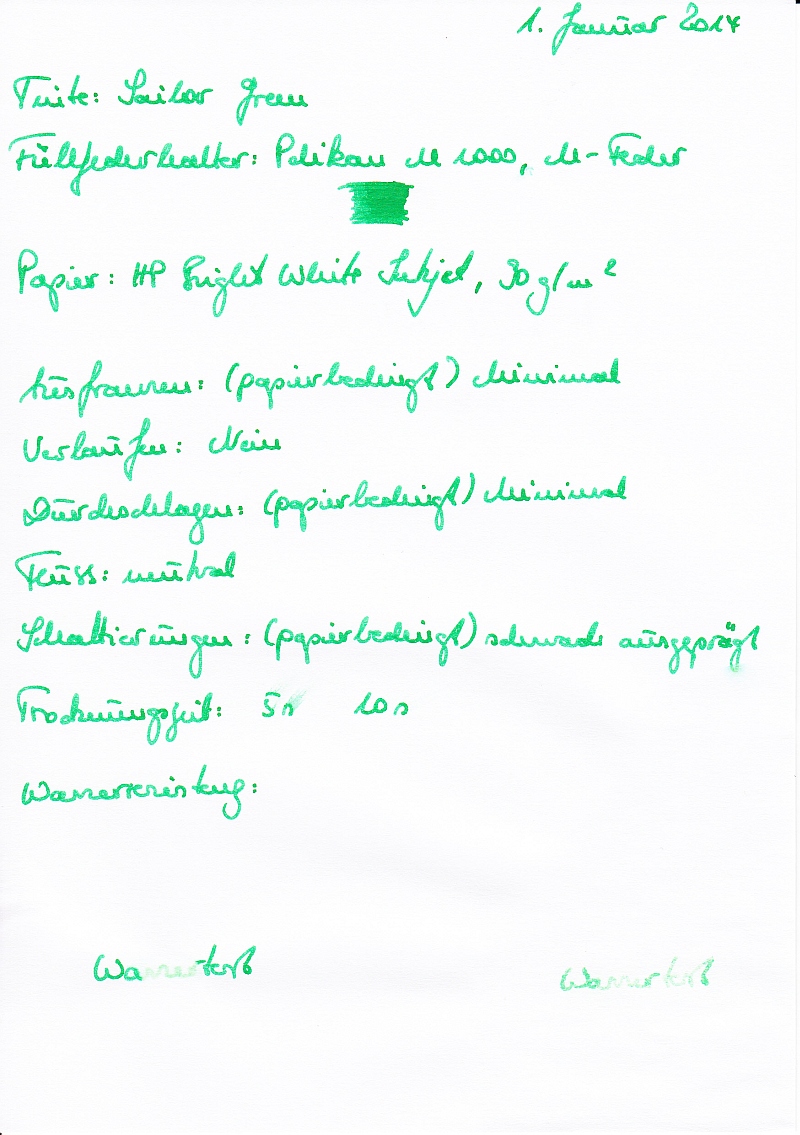 1. Januar 2014
Tinte: Sailor Green
Füllfederhalter: Pelikan M 1000, M-Feder
Papier: HP Bright White Inkjet, 90 g/m²
Ausfransen: (papierbedingt) Minimal
Verlaufen: Nein
Durchschlagen: (papierbedingt) Minimal
Fluss: neutral
Schattierungen: (papierbedingt) schwach ausgeprägt
Trocknungszeit: 5s 10s
Wasserresistenz:
Wassertest Wassertest